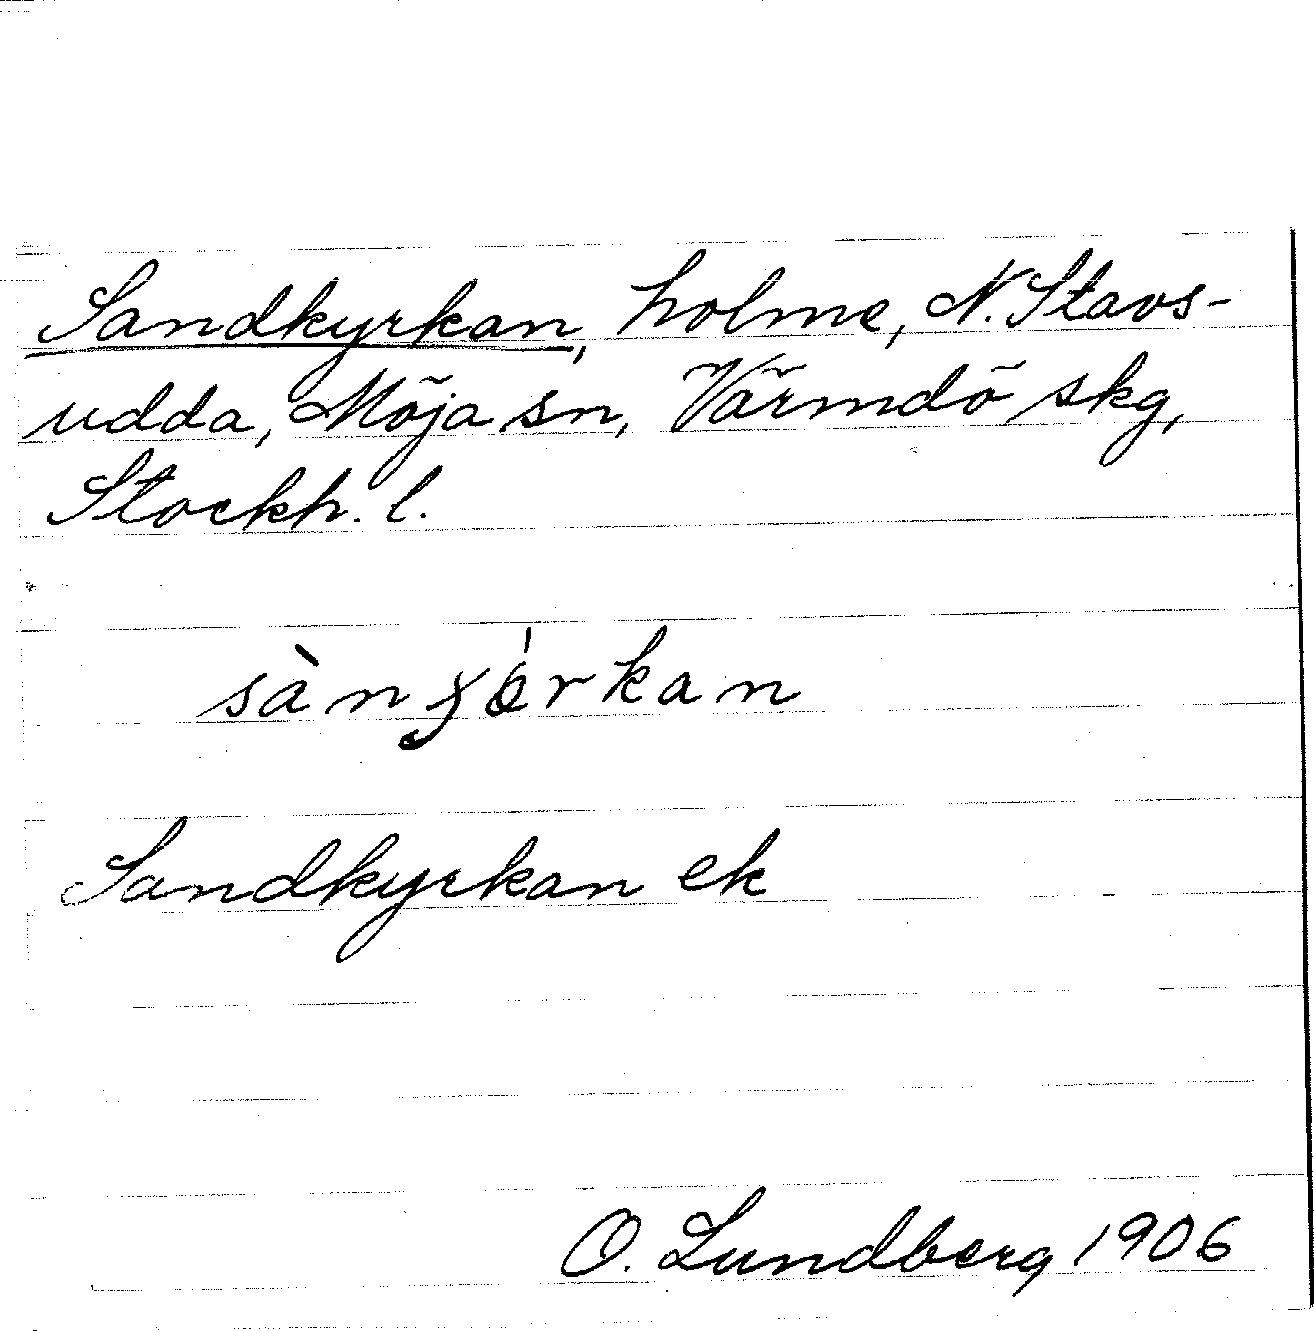 Sandkyrkan, holme, N. Stavs-
udda, Möja sn, Värmdö skg,
Stockh. l.
sànɣörkan
Sandkyrkan ek
O. Lundberg 1906